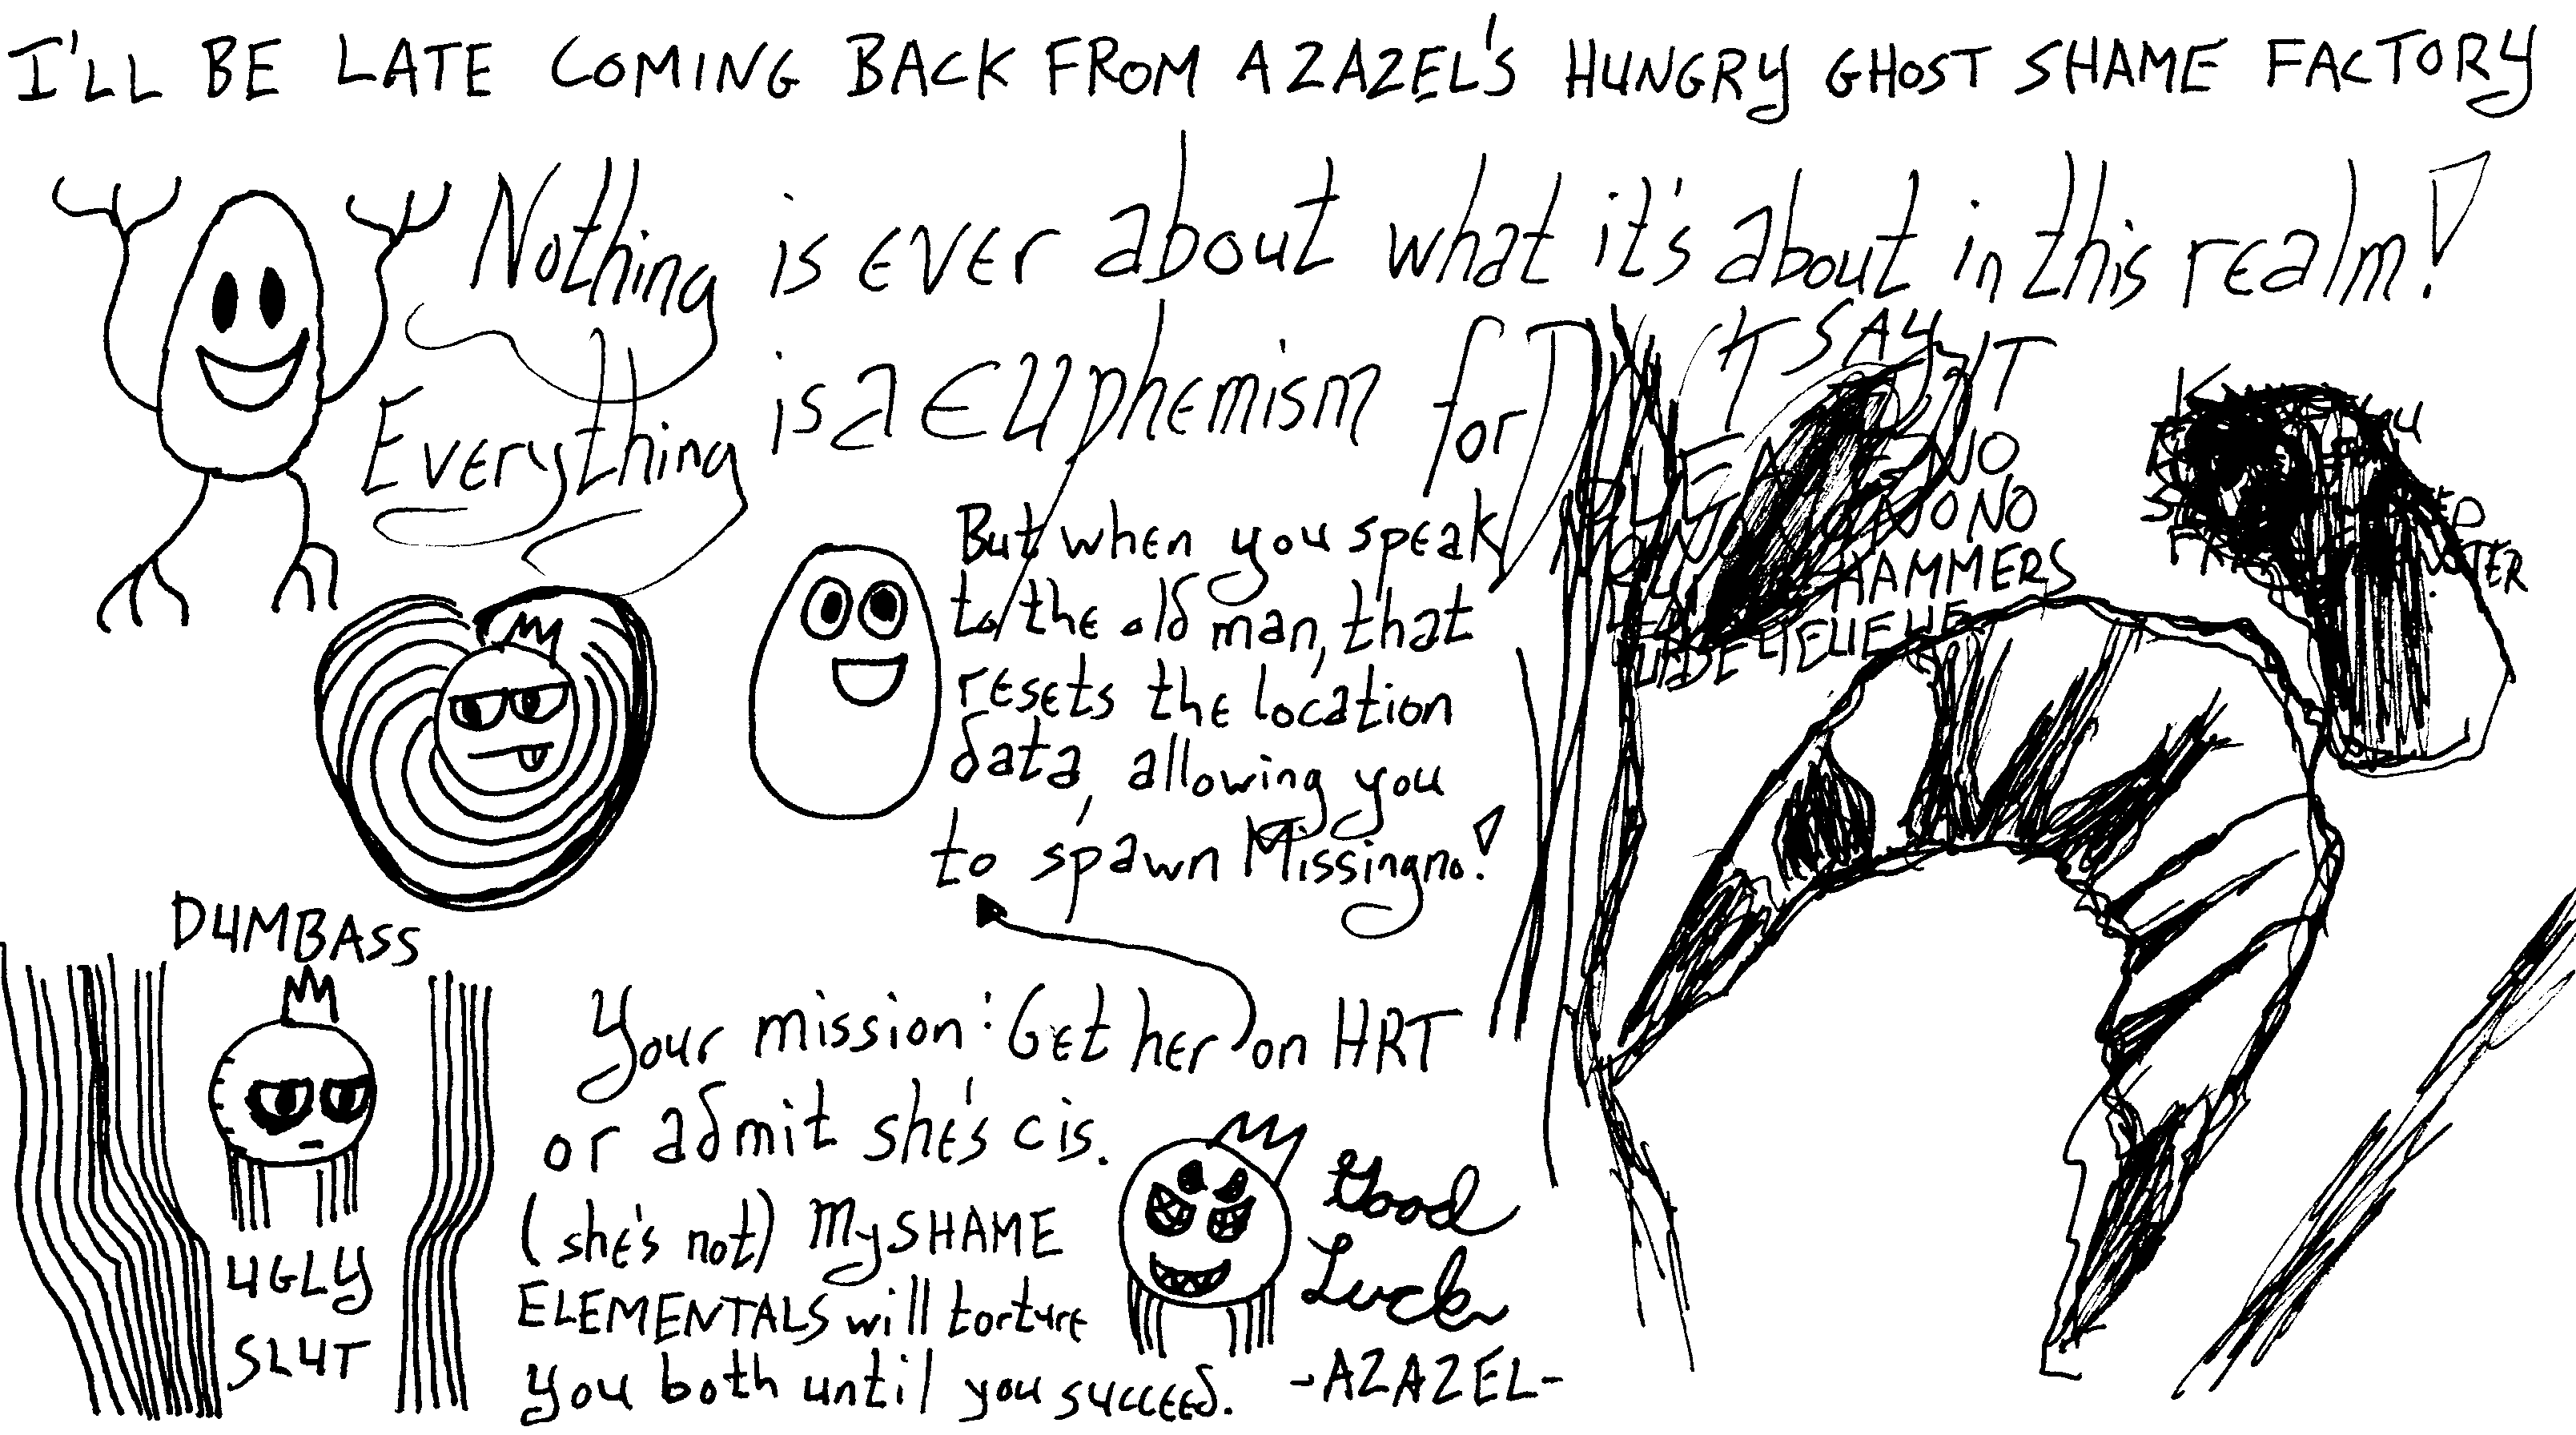 I'LL BE LATE COMING BACK FROM AZAZEL'S HUNGRY GHOST SHAME FACTORY
Nothing is ever about what it's about in this realm!
Everything is a euphemism for
DON'T SAY IT
PLEASE NO
NO NO NO NO
HAMMERS
But when you speak
to the old man, that
resets the location
data, allowing you
to spawn Missingno!
DUMBASS
UGLY
SLUT
Your mission: Get her on HRT
or admit she's cis.
(she's not) My SHAME
ELEMENTALS will torture
you both until you succeed.
Good
Luck
-AZAZEL-